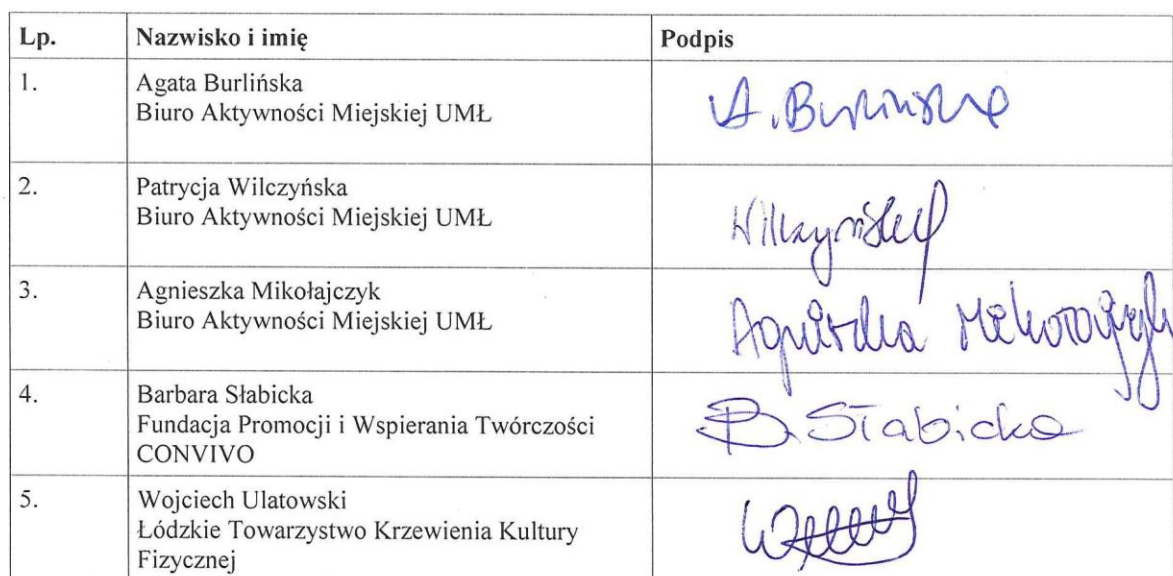 Lp. Nazwisko i imię Podpis
1. Agata Burlińska
Biuro Aktywności Miejskiej UMŁ
A. Burlińska
2. Patrycja Wilczyńska
Biuro Aktywności Miejskiej UMŁ
Wilczyńska
3. Agnieszka Mikołajczyk
Biuro Aktywności Miejskiej UMŁ
Agnieszka Mikołajczyk
4. Barbara Słabicka
Fundacja Promocji i Wspierania Twórczości
CONVIVO
B. Słabicka
5. Wojciech Ulatowski
Łódzkie Towarzystwo Krzewienia Kultury
Fizycznej